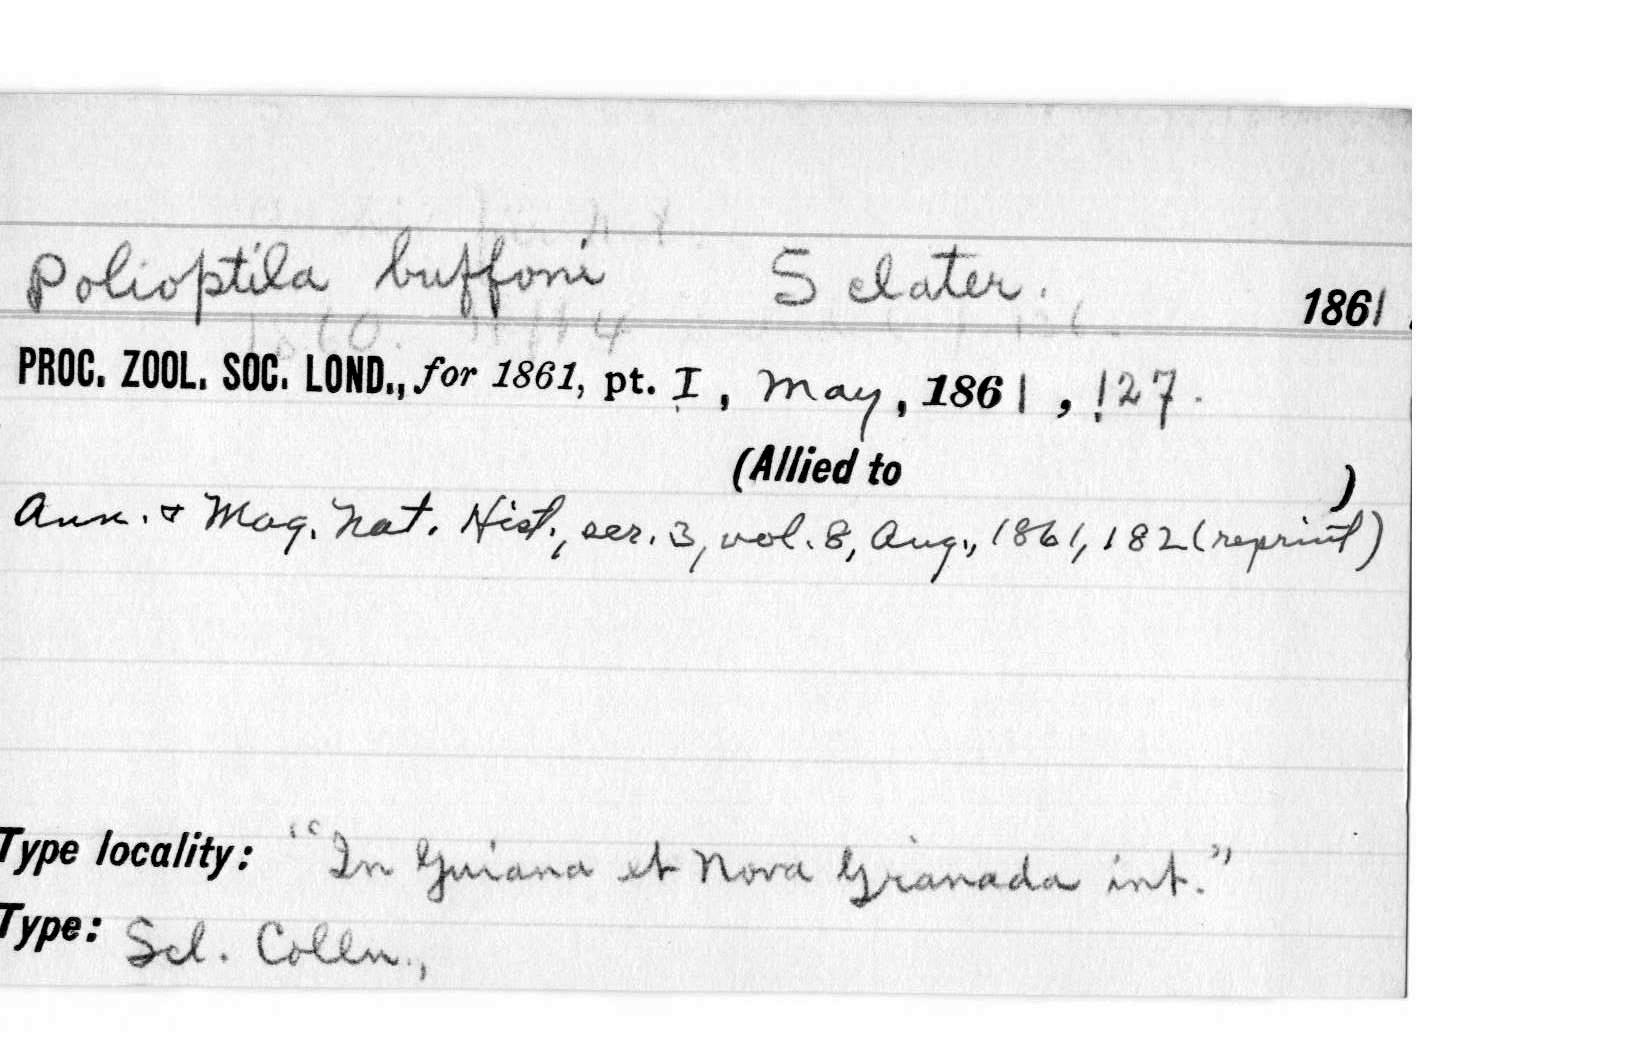 Polioptila buffoni Sclater. 1861.
PROC. ZOOL. SOC. LOND., for 1861, pt. I, May, 1861, 127.
(Allied to )
Ann. & Mag. Nat. Hist., ser. 3, vol. 8, Aug., 1861, 182 (reprint)
Type locality: "In Guiana et Nova Granada int."
Type: Scl. Colln.,